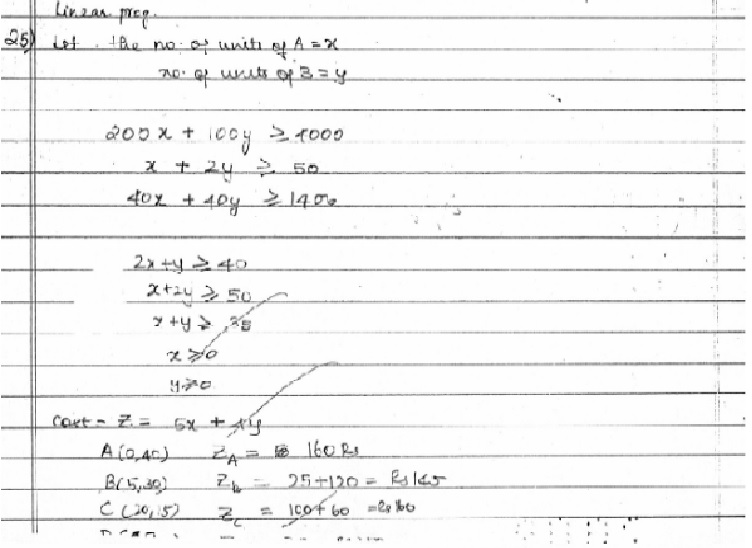 Linear prog.
25) Let the no. of units of A = x
no. of units of B = y
200x + 100y ≥ 4000
x + 2y ≥ 50
40x + 40y ≥ 1400
2x + y ≥ 40
x + 2y ≥ 50
x + y ≥ 35
x ≥ 0
y ≥ 0
Cost - Z = 5x + 4y
A (0,40) Z_A = 160 Rs
B (5,30) Z_b = 25 + 120 = Rs 145
C (20,15) Z_c = 100 + 60 = Rs 160